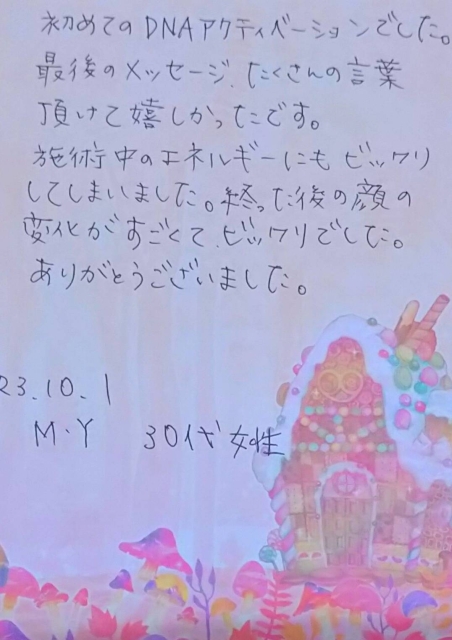 初めてのDNAアクティベーションでした。
最後のメッセージ、たくさんの言葉
頂けて嬉しかったです。
施術中のエネルギーにもビックリ
してしまいました。終った後の顔の
変化がすごくて、ビックリでした。
ありがとうございました。
23.10.1
M.Y 30代女性